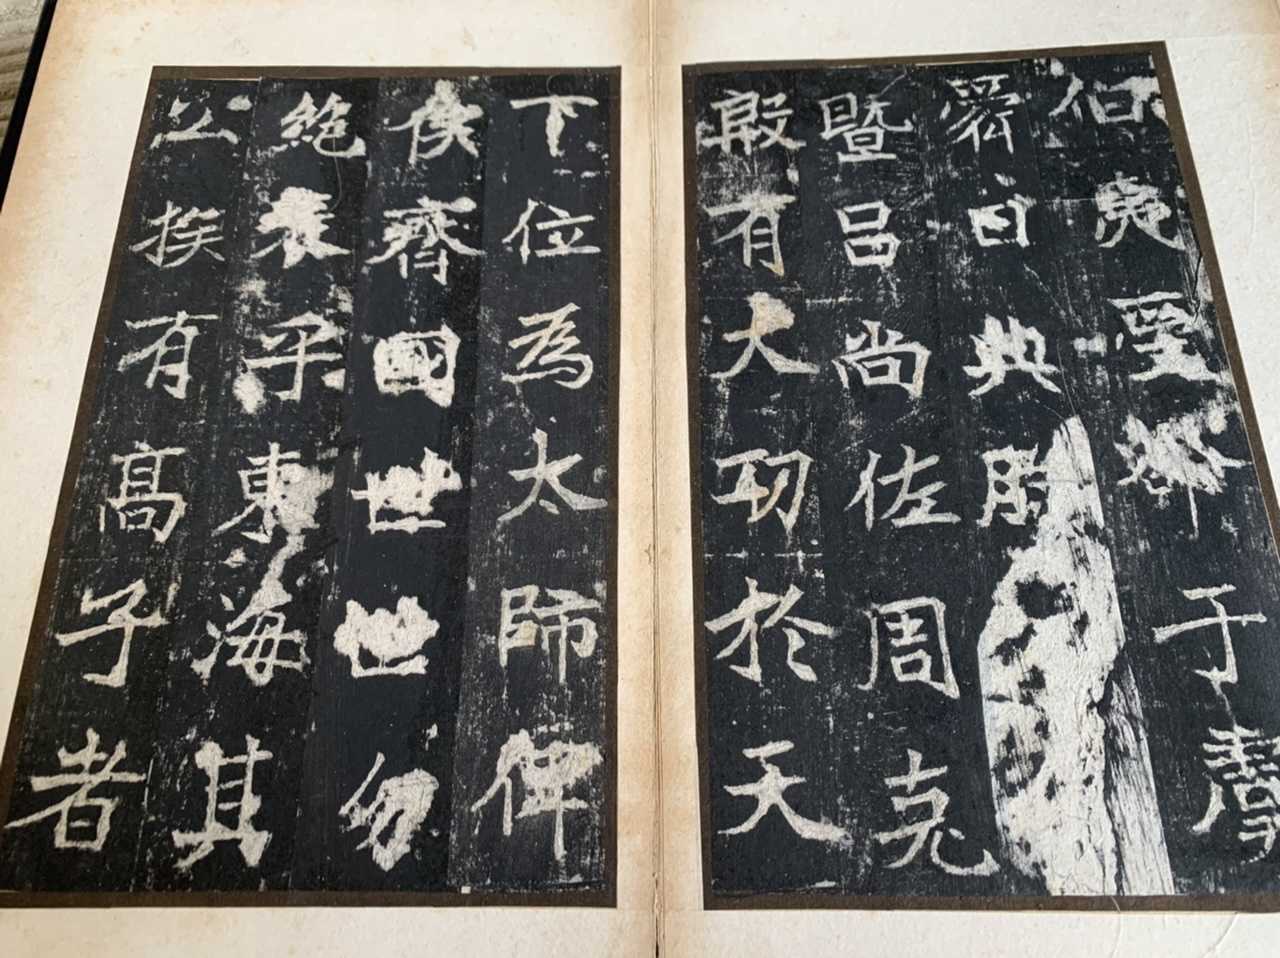 伯夷受命于虞
舜曰典朕
暨呂尚佐周克
殷有大功於天
下位為太師俾
侯齊國世世勿
絕表乎東海其
公族有高子者